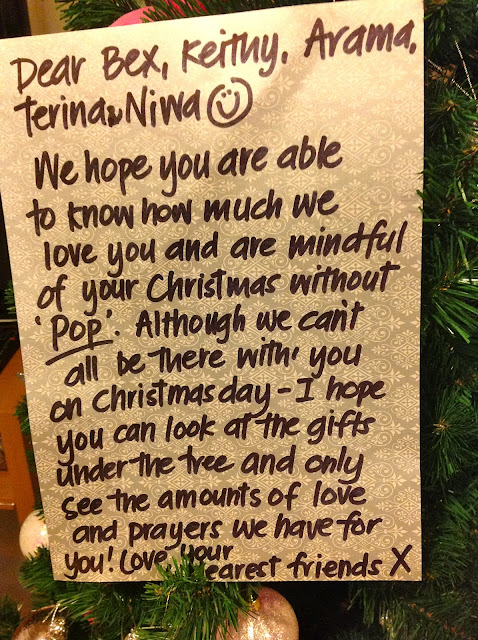 Dear Bex, Keithy, Arama,
Terina & Niwa
We hope you are able
to know how much we
love you and are mindful
of your Christmas without
'Pop'. Although we can't
all be there with you
on Christmas day - I hope
you can look at the gifts
under the tree and only
see the amounts of love
and prayers we have for
you! Love your
earest friends X